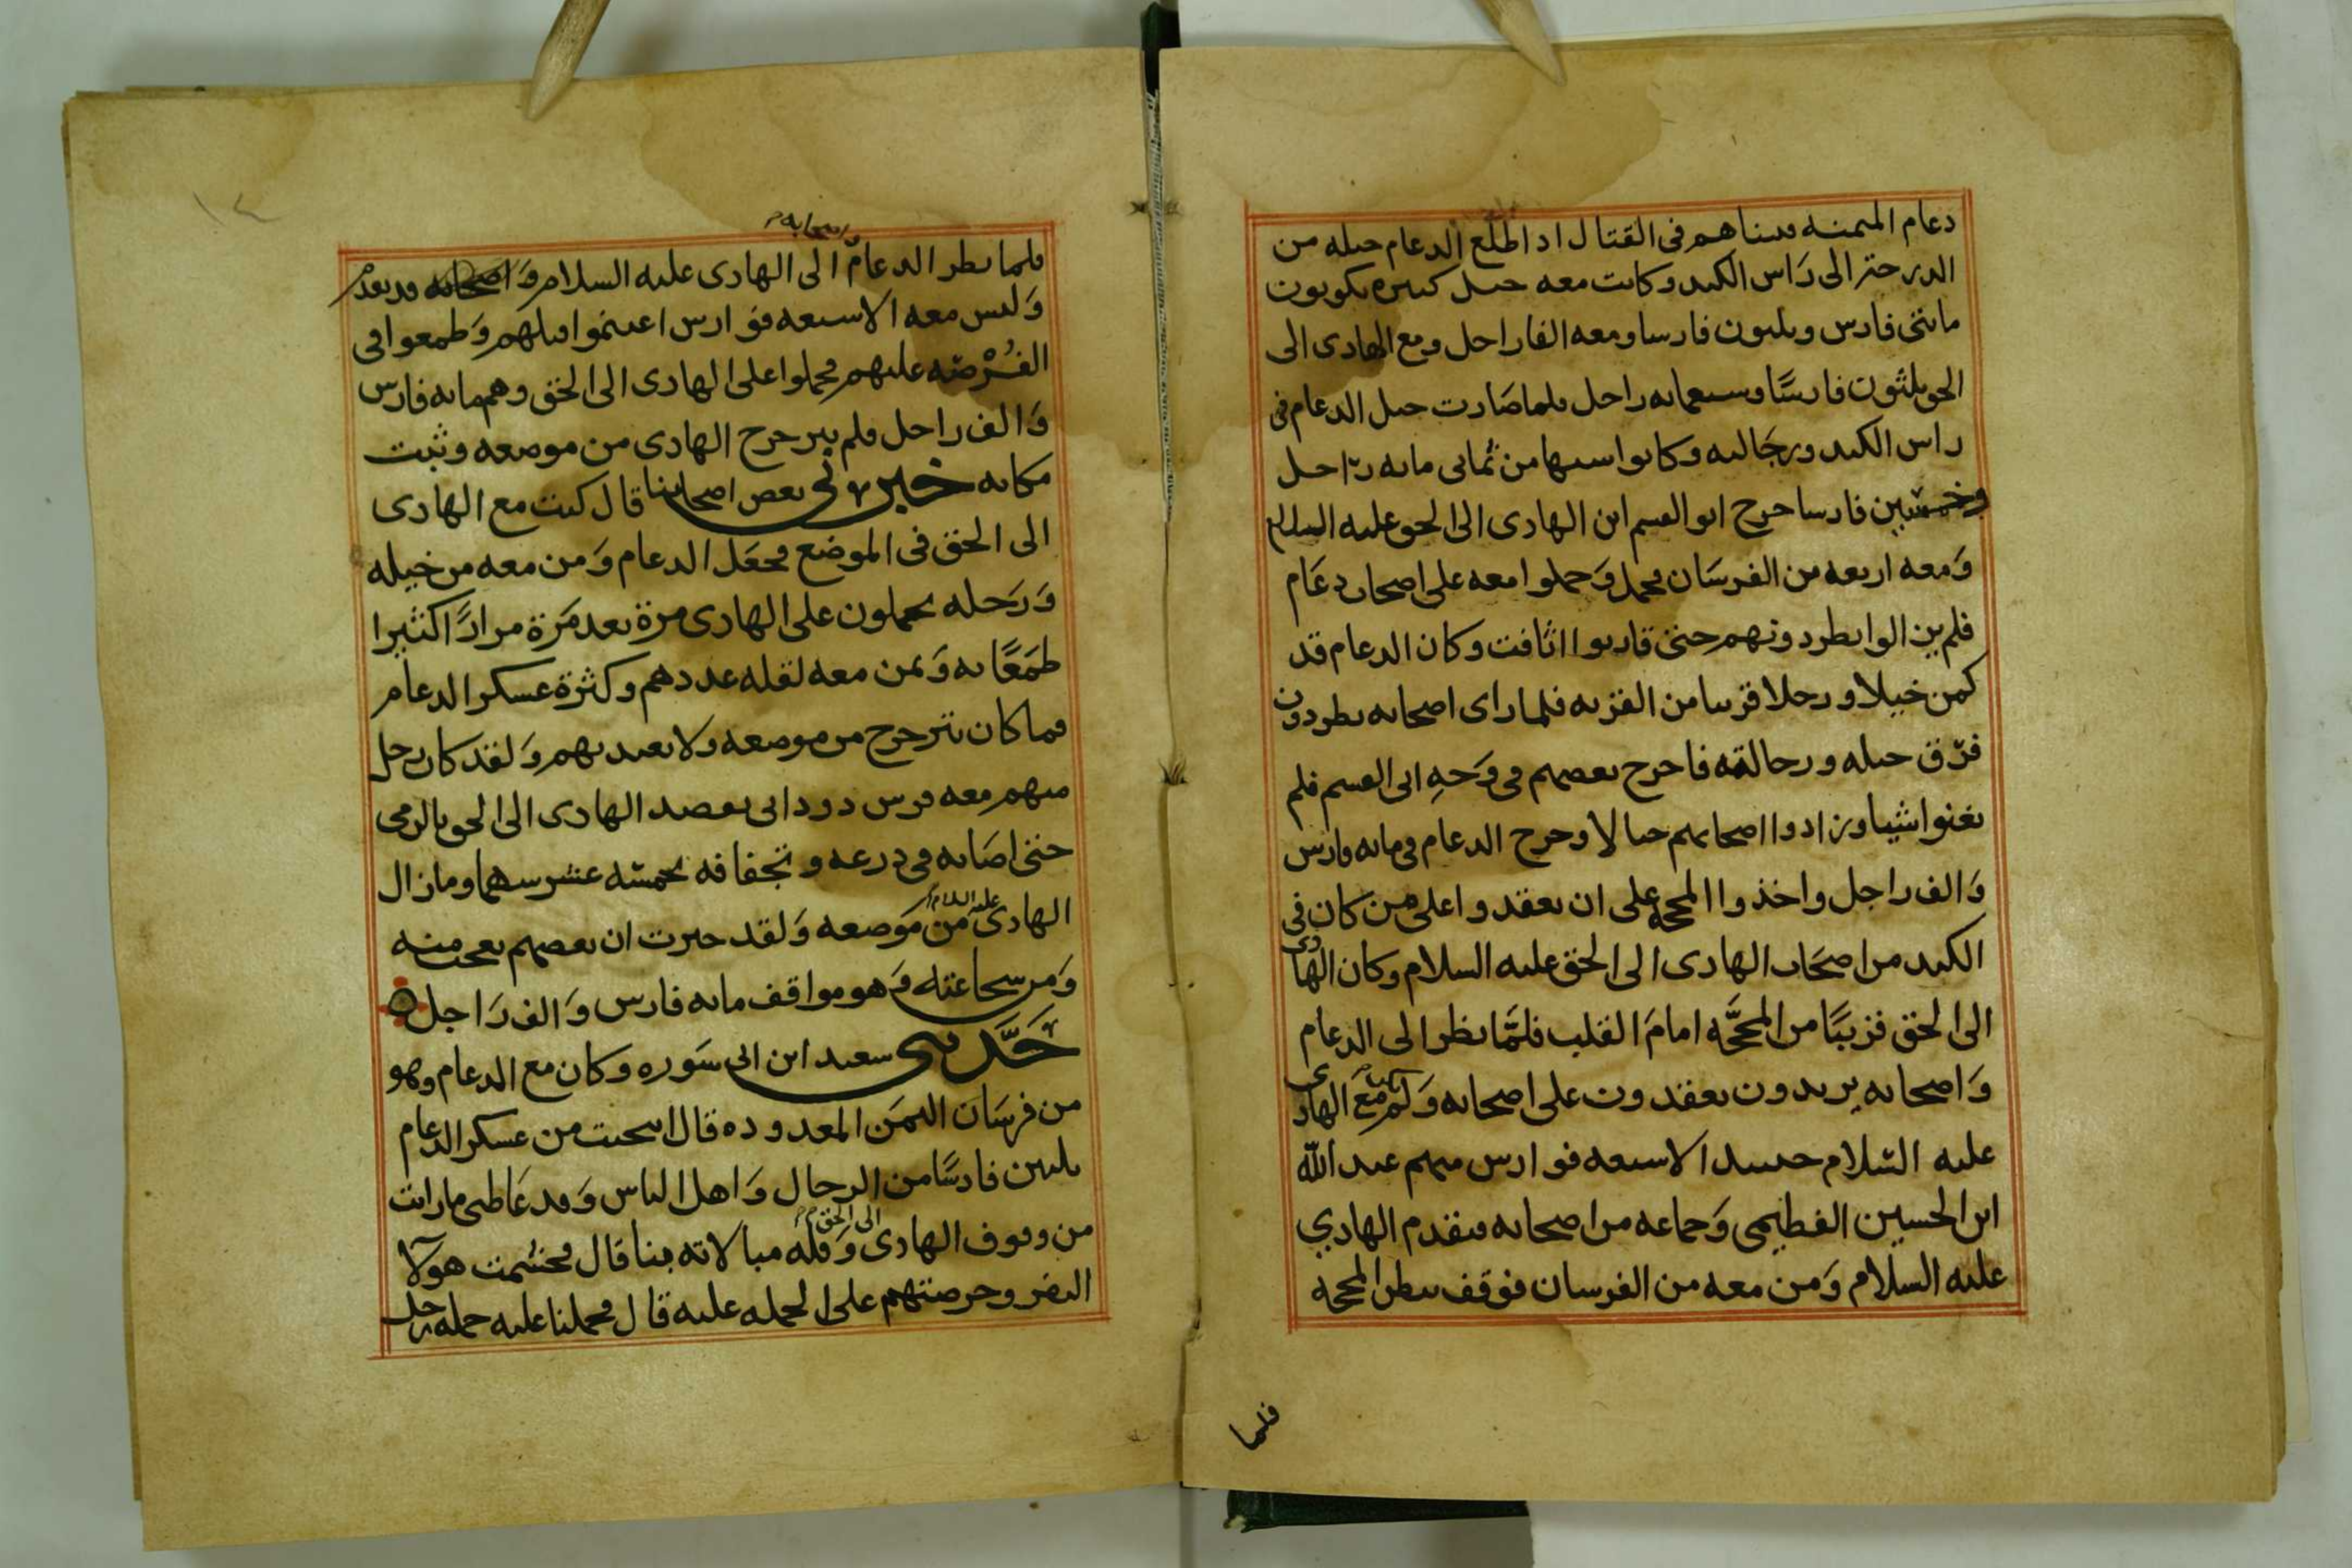 دعام الميمنه فبيناهم فى القتال اذ اطلع الدعام خيله من
الدرب حتر الى رَاس الكبد وكانت معه خيل كثيره يكونون
مائتى فارس وثلثون فارسا ومعه الفا راجل ومع الهادى الى
الحق ثلثون فارسًا وسبعمائه راجل فلما صَارت خيل الدعام فى
راس الكبد ورجَالته وكانوا سهما من ثمانى مائه رَاجل
وخمسين فارسا خرج ابو القسم ابن الهادى الى الحق عليه السلام
وَمعه اربعه من الفرسَان فحمل وَحملوا معه على اصحاب دعَام
فلم يزالوا يطردونهم حتى قاربوا اثافت وكان الدعام قد
كمن خيلا ورجلا قريبا من القريه فلما راى اصحابه يطردون
فرّق خيله ورجالته فاخرج بعضهم فى وَجهِ ابى القسم فلم
يغنوا شيئا وزادوا اصحابهم خبالا وخرج الدعام فى مائه فارس
وَالف راجل واخذوا المحجه على ان يعقدوا على من كان فى
الكبد من اصحَاب الهادى الى الحق عليه السلام وكان الهادى
الى الحق قريبًا من المحجَّه امامَ القلب فلمَّا نظر الى الدعام
وَاصحابه يريدون يعقدون على اصحابه وَلم يكن مَعَ الهادى
عليه السّلام حينئذ الا سبعه فوارس منهم عبد الله
ابن الحسين الفطيمى وَجماعه من اصحابه فتقدم الهادي
عليه السلام وَمن معه من الفرسان فوقف ينظر المحجه
فلما
١٤
واصحابه
فلما نظر الدعام الى الهادى عليه السلام وَاصحابه قد تعدم
وَليس معه الا سبعه فوارس اغتنموا قتلهم وَطمعوا فى
الفُرْصَه عليهم فحملوا على الهادى الى الحق وهم مائه فارس
وَالف راجل فلم يتزحزح الهادى من موضعه وثبت
مكانه خبرنى بعض اصحابنا قال كنت مع الهادى
الى الحق فى الموضع فجعَل الدعام وَمن معه من خيله
وَرَجله يحملون على الهادى مرة بعد مَرة مرارًا كثيرا
طمَعًا به وَبمن معه لقله عددهم وكثرة عسكر الدعام
فما كان يتزحزح من موضعه ولا يعبد بهم وَلقد كان رجل
منهم معه فرس دودانى يقصد الهادى الى الحق بالرمى
حتى اصَابه فى درعه وتجفافه بخمسه عشر سهما وما زال
الهادى عليه السلام من مَوضعه وَلقد خبرت ان بعضهم يعجب منه
وَمن شجاعته وَهو مواقف مائه فارس وَالف رَاجل
حَدَّثنى سعيد ابن ابى سَوره وكان مع الدعام وهو
من فرسَان اليمَن المعدوده قال انتخبت من عسكر الدعام
ثلثين فارسًا من الرجال وَاهل الباس وَقد غَاظنى ما رايت
من وقوف الهادى الى الحق وَقلة مبالاته بنا قال فحشمت هولآ
النفر وحرضتهم على الحمله عليه قال فحملنا عليه حمله رجل